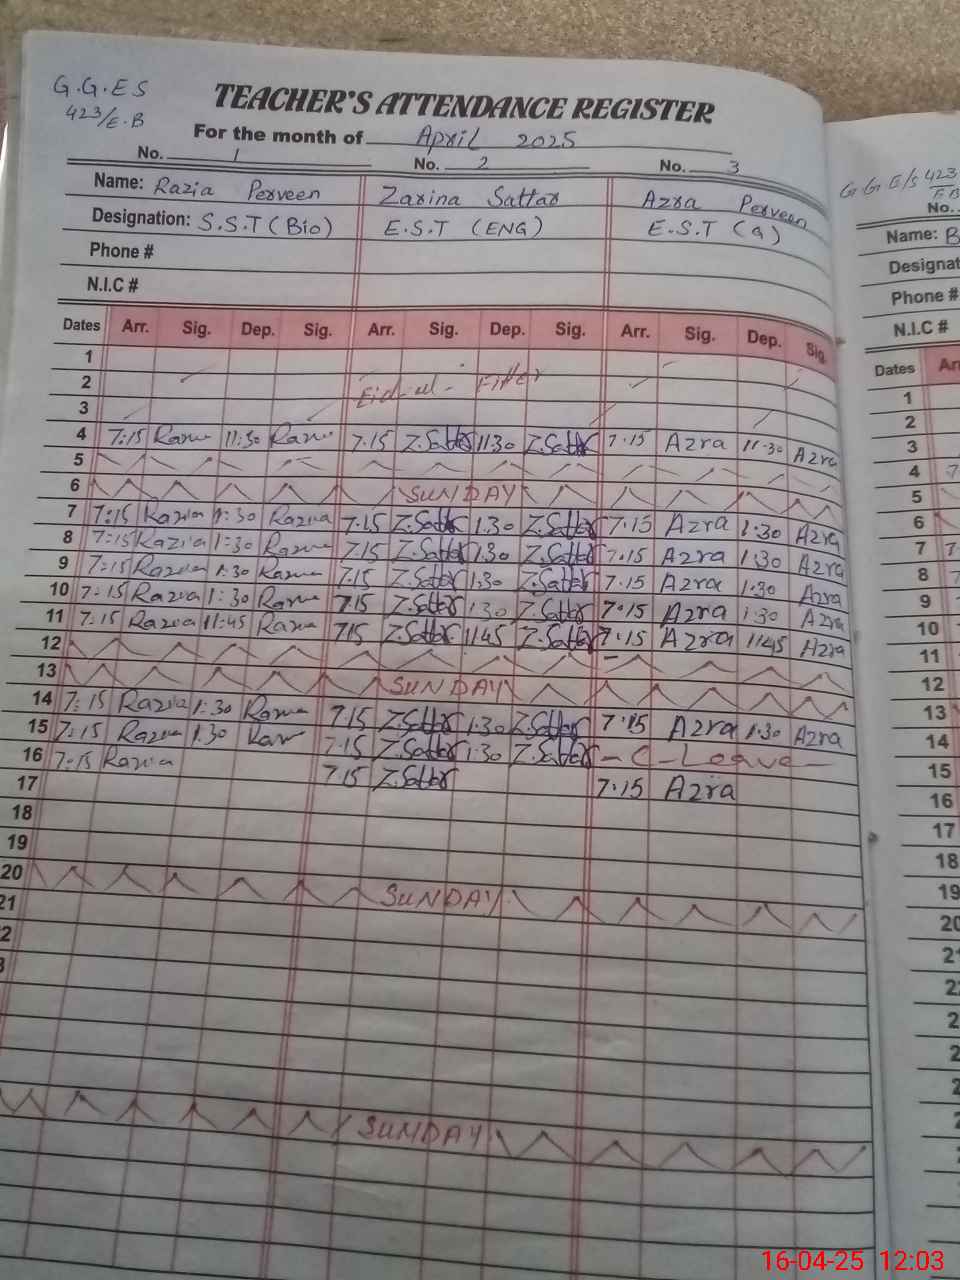 G.G.E S
423/E.B
TEACHER'S ATTENDANCE REGISTER
For the month of April 2025
No. 1 No. 2 No. 3
Name: Razia Perveen Zarina Sattar Azra Perveen
Designation: S.S.T (Bio) E.S.T (ENG) E.S.T (G)
Phone #
N.I.C #
Dates Arr. Sig. Dep. Sig. Arr. Sig. Dep. Sig. Arr. Sig. Dep. Sig.
1
2 Eid-ul-Fiter
3
4 7:15 Razia 11:30 Razia 7.15 Z.Sattar 11.30 Z.Sattar 7.15 Azra 11.30 Azra
5
6 SUNDAY
7 7:15 Razia 1:30 Razia 7.15 Z.Sattar 1.30 Z.Sattar 7.15 Azra 1.30 Azra
8 7:15 Razia 1:30 Razia 7.15 Z.Sattar 1.30 Z.Sattar 7.15 Azra 1.30 Azra
9 7:15 Razia 1:30 Razia 7.15 Z.Sattar 1.30 Z.Sattar 7.15 Azra 1.30 Azra
10 7:15 Razia 1:30 Razia 7.15 Z.Sattar 1.30 Z.Sattar 7.15 Azra 1.30 Azra
11 7:15 Razia 11:45 Razia 7.15 Z.Sattar 11.45 Z.Sattar 7.15 Azra 11.45 Azra
12
13 SUNDAY
14 7:15 Razia 1:30 Razia 7.15 Z.Sattar 1.30 Z.Sattar 7.15 Azra 1.30 Azra
15 7:15 Razia 1:30 Razia 7.15 Z.Sattar 1.30 Z.Sattar - C - Leave -
16 7:15 Razia 7.15 Z.Sattar 7.15 Azra
17
18
19
20 SUNDAY
21
SUNDAY
G G E/S 423
E.B
No.
Name: B
Phone #
N.I.C #
Dates
1
2
3
4
5
6
7
8
9
10
11
12
13
14
15
16
17
18
19
20
16-04-25 12:03